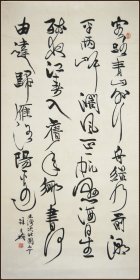 客路青山外行舟綠水前潮
平兩岸闊風正一帆懸海日生
殘夜江春入舊年鄉書何
處達歸雁洛陽邊
王灣次北固山下